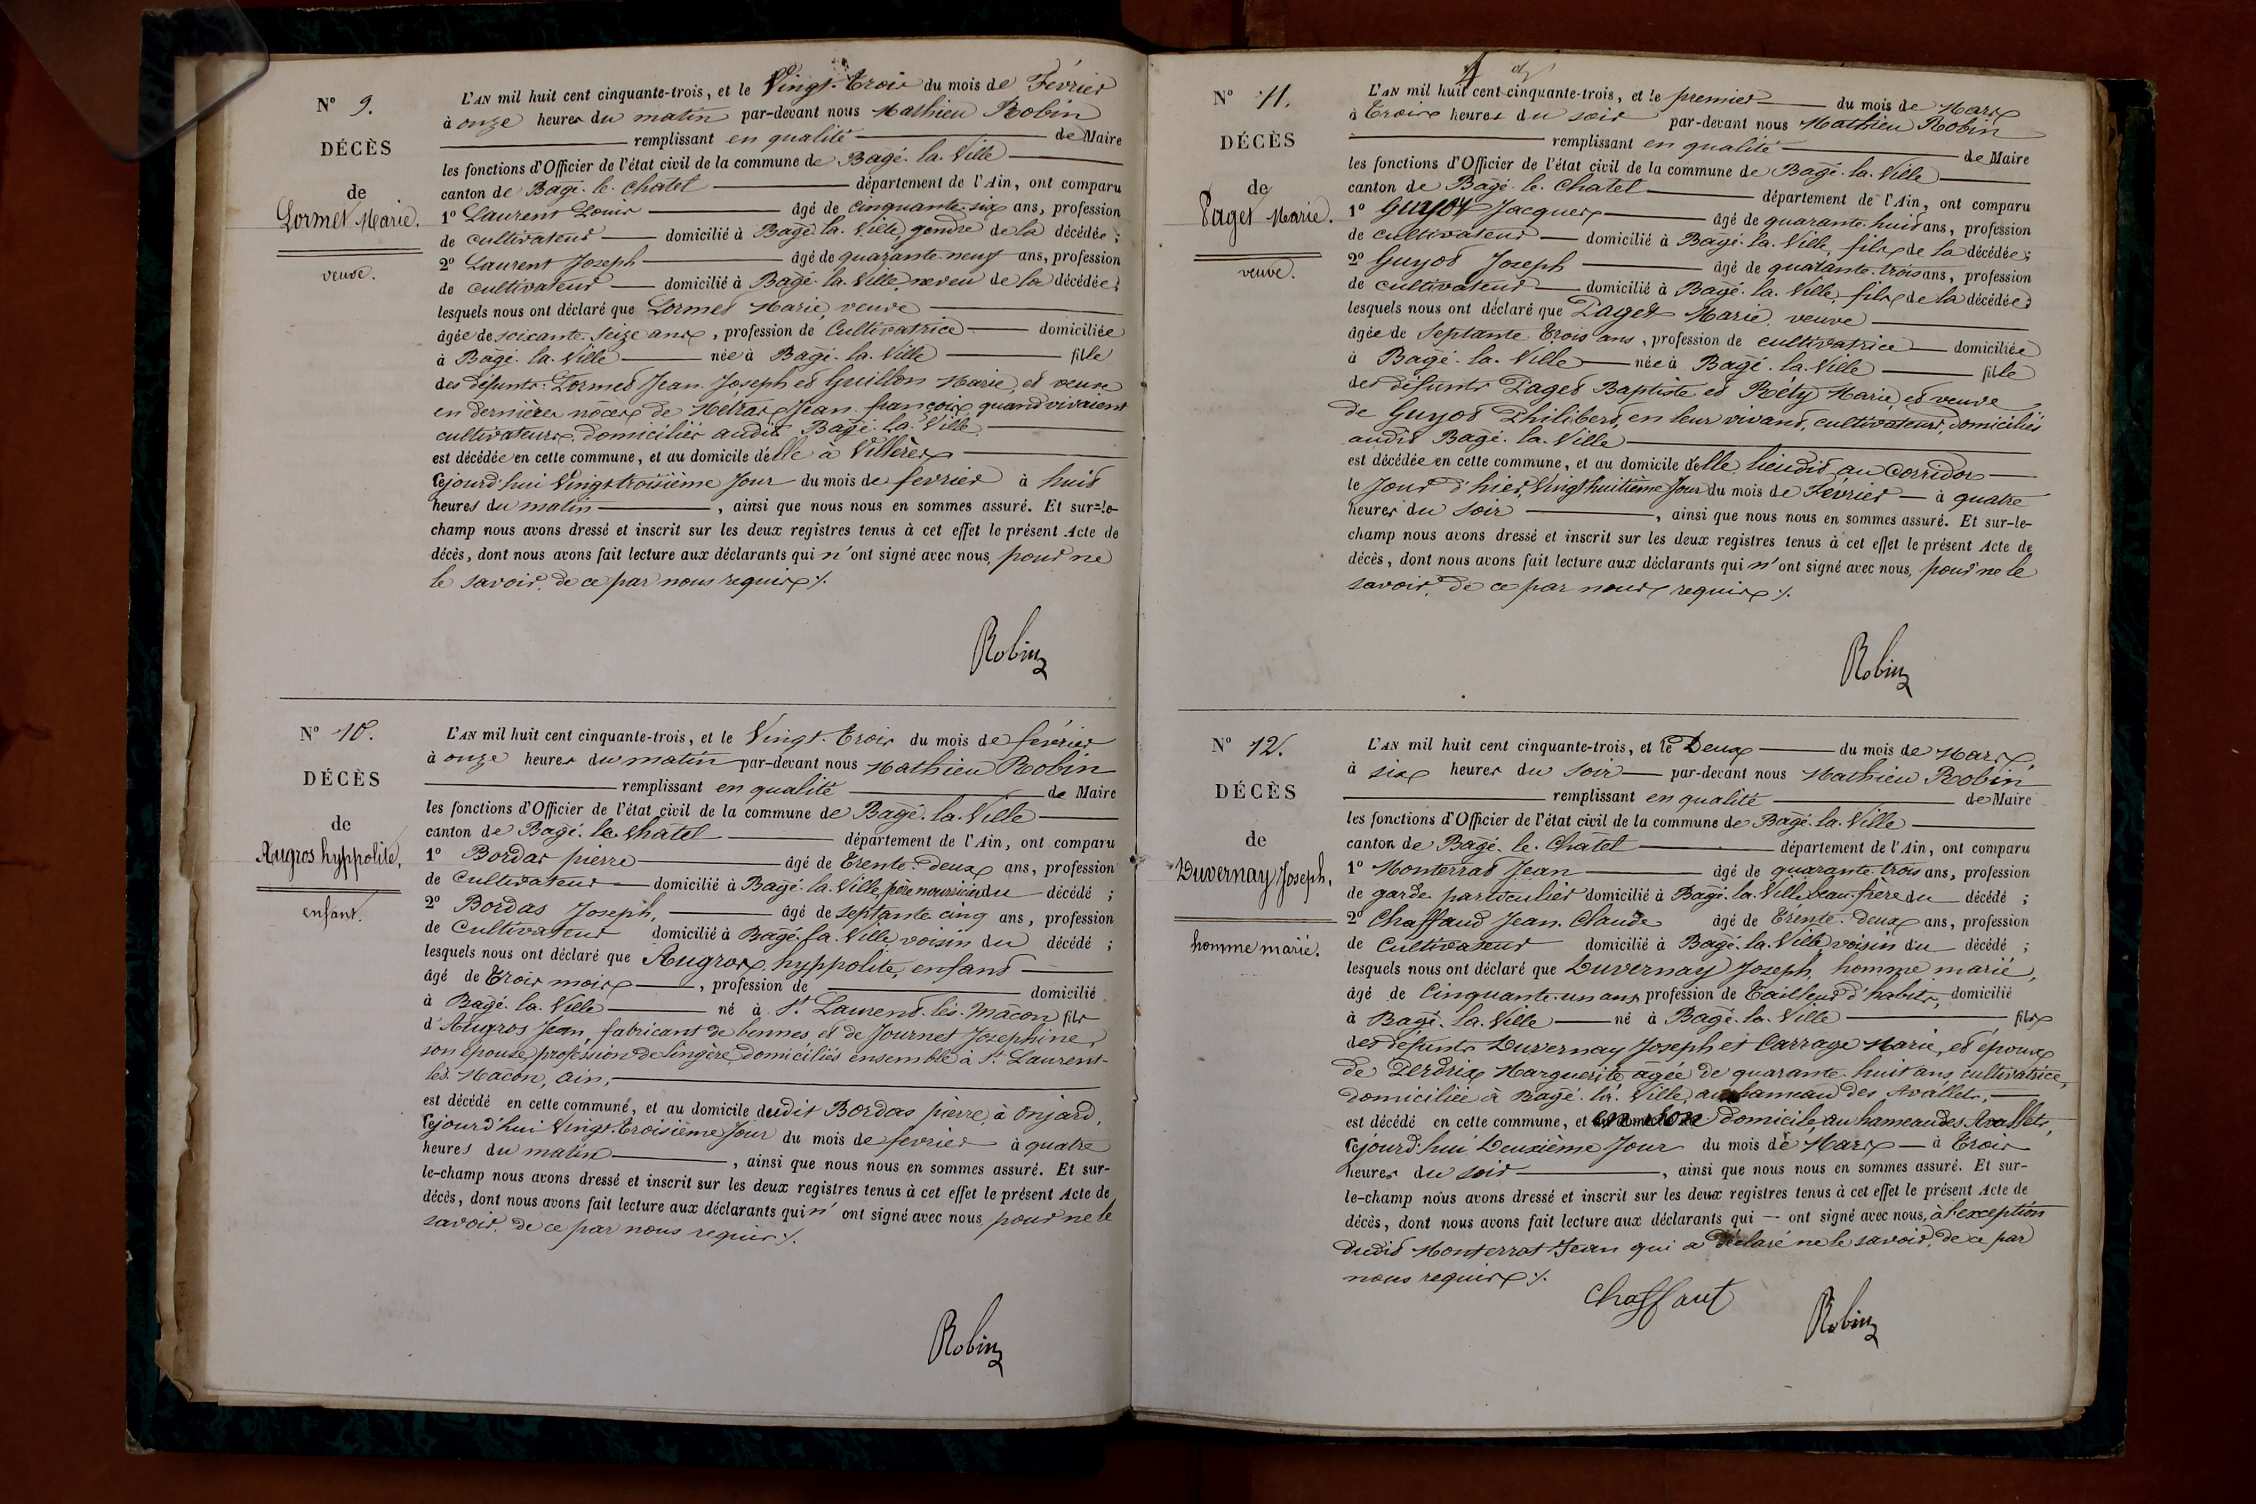 N° 9.
DÉCÈS
de
Lormet Marie.
veuve.
L'AN mil huit cent cinquante-trois, et le Vingt-trois du mois de Février
à onze heures du matin par-devant nous Mathieu Robin
remplissant en qualité de Maire
les fonctions d'Officier de l'état civil de la commune de Bagé-la-Ville
canton de Bagé-le-Chatel département de l'Ain, ont comparu
1° Laurent Louis âgé de cinquante-six ans, profession
de cultivateur domicilié à Bagé-la-Ville, gendre de la décédée;
2° Laurent Joseph âgé de quarante-neuf ans, profession
de cultivateur domicilié à Bagé-la-Ville, neveu de la décédée;
lesquels nous ont déclaré que Lormet Marie, veuve
âgée de soixante-seize ans, profession de Cultivatrice domiciliée
à Bagé-la-Ville née à Bagé-la-Ville fille
des défunts Lormet Jean-Joseph et Guillon Marie, et veuve
en dernières nôces de Métras Jean-françois, quand vivaient
cultivateurs, domiciliés audit Bagé-la-Ville,
est décédée en cette commune, et au domicile d'elle à Villères
cejourd'hui Vingt-troisième Jour du mois de fevrier à huit
heures du matin, ainsi que nous nous en sommes assuré. Et sur-le-
champ nous avons dressé et inscrit sur les deux registres tenus à cet effet le présent Acte de
décès, dont nous avons fait lecture aux déclarants qui n'ont signé avec nous, pour ne
le savoir, de ce par nous requis ./.
Robin
N° 10.
DÉCÈS
de
Augros hyppolite,
enfant.
L'AN mil huit cent cinquante-trois, et le Vingt-trois du mois de fevrier
à onze heures du matin par-devant nous Mathieu Robin
remplissant en qualité de Maire
les fonctions d'Officier de l'état civil de la commune de Bagé-la-Ville
canton de Bagé-le-Chatel département de l'Ain, ont comparu
1° Bordas pierre âgé de Trente-deux ans, profession
de Cultivateur domicilié à Bagé-la-Ville, père nourricier du décédé;
2° Bordas Joseph, âgé de septante cinq ans, profession
de Cultivateur domicilié à Bagé-la-Ville, voisin du décédé;
lesquels nous ont déclaré que Augros, hyppolite, enfant
âgé de Trois mois, profession de domicilié
à Bagé-la-Ville né à St Laurent-lès-Mâcon fils
d'Augros Jean, fabricant de bennes, et de Journet Josephine,
son épouse, profession de lingère, domiciliés ensemble à St Laurent-
lès-Mâcon, Ain,
est décédé en cette commune, et au domicile dudit Bordas pierre, à Onjard,
cejourd'hui Vingt-troisième Jour du mois de fevrier à quatre
heures du matin, ainsi que nous nous en sommes assuré. Et sur-
le-champ nous avons dressé et inscrit sur les deux registres tenus à cet effet le présent Acte de
décès, dont nous avons fait lecture aux déclarants qui n'ont signé avec nous pour ne le
savoir, de ce par nous requis ./.
Robin
4
N° 11.
DÉCÈS
de
Paget Marie.
veuve.
L'AN mil huit cent cinquante-trois, et le premier du mois de Mars
à Trois heures du soir par-devant nous Mathieu Robin
remplissant en qualité de Maire
les fonctions d'Officier de l'état civil de la commune de Bagé-la-Ville
canton de Bagé-le-Chatel département de l'Ain, ont comparu
1° Guyot Jacques âgé de quarante-huit ans, profession
de cultivateur domicilié à Bagé-la-Ville, fils de la décédée;
2° Guyot Joseph âgé de quarante-trois ans, profession
de cultivateur domicilié à Bagé-la-Ville, fils de la décédée;
lesquels nous ont déclaré que Paget Marie, veuve
âgée de Septante Trois ans, profession de cultivatrice domiciliée
à Bagé-la-Ville née à Bagé-la-Ville fille
des défunts Paget Baptiste et Réty Marie, et veuve
de Guyot Philibert, en leur vivant, cultivateurs, domiciliés
audit Bagé-la-Ville
est décédée en cette commune, et au domicile d'elle, lieudit au Corridor
le Jour d'hier, Vingt huitième Jour du mois de Février à quatre
heures du soir, ainsi que nous nous en sommes assuré. Et sur-le-
champ nous avons dressé et inscrit sur les deux registres tenus à cet effet le présent Acte de
décès, dont nous avons fait lecture aux déclarants qui n'ont signé avec nous, pour ne le
savoir, de ce par nous requis ./.
Robin
N° 12.
DÉCÈS
de
Duvernay Joseph,
homme marié.
L'AN mil huit cent cinquante-trois, et le Deux du mois de Mars,
à six heures du soir par-devant nous Mathieu Robin
remplissant en qualité de Maire
les fonctions d'Officier de l'état civil de la commune de Bagé-la-Ville
canton de Bagé-le-Chatel département de l'Ain, ont comparu
1° Monterrat Jean âgé de quarante-trois ans, profession
de garde particulier domicilié à Bagé-la-Ville, beau-frère du décédé;
2° Chaffaud Jean-Claude âgé de Trente-deux ans, profession
de Cultivateur domicilié à Bagé-la-Ville, voisin du décédé;
lesquels nous ont déclaré que Duvernay Joseph, homme marié,
âgé de Cinquante-un ans, profession de Tailleur d'habits, domicilié
à Bagé-la-Ville né à Bagé-la-Ville fils
des défunts Duvernay Joseph et Carrage Marie, et époux
de Perdrix Marguerite, agée de quarante-huit ans, cultivatrice,
domiciliée à Bagé-la-Ville, au hameau des Avallets,
est décédé en cette commune, et en son domicile, au hameau des Avallets,
cejourd'hui Deuxième Jour du mois de Mars à Trois
heures du soir, ainsi que nous nous en sommes assuré. Et sur-
le-champ nous avons dressé et inscrit sur les deux registres tenus à cet effet le présent Acte de
décès, dont nous avons fait lecture aux déclarants qui ont signé avec nous, à l'exception
dudit Monterrat Jean qui a déclaré ne le savoir, de ce par
nous requis ./.
Chaffaut
Robin